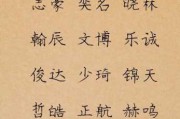 志豪 奕名 晓林
翰辰 文博 乐诚
俊达 少琦 锦天
哲皓 正航 赫鸣